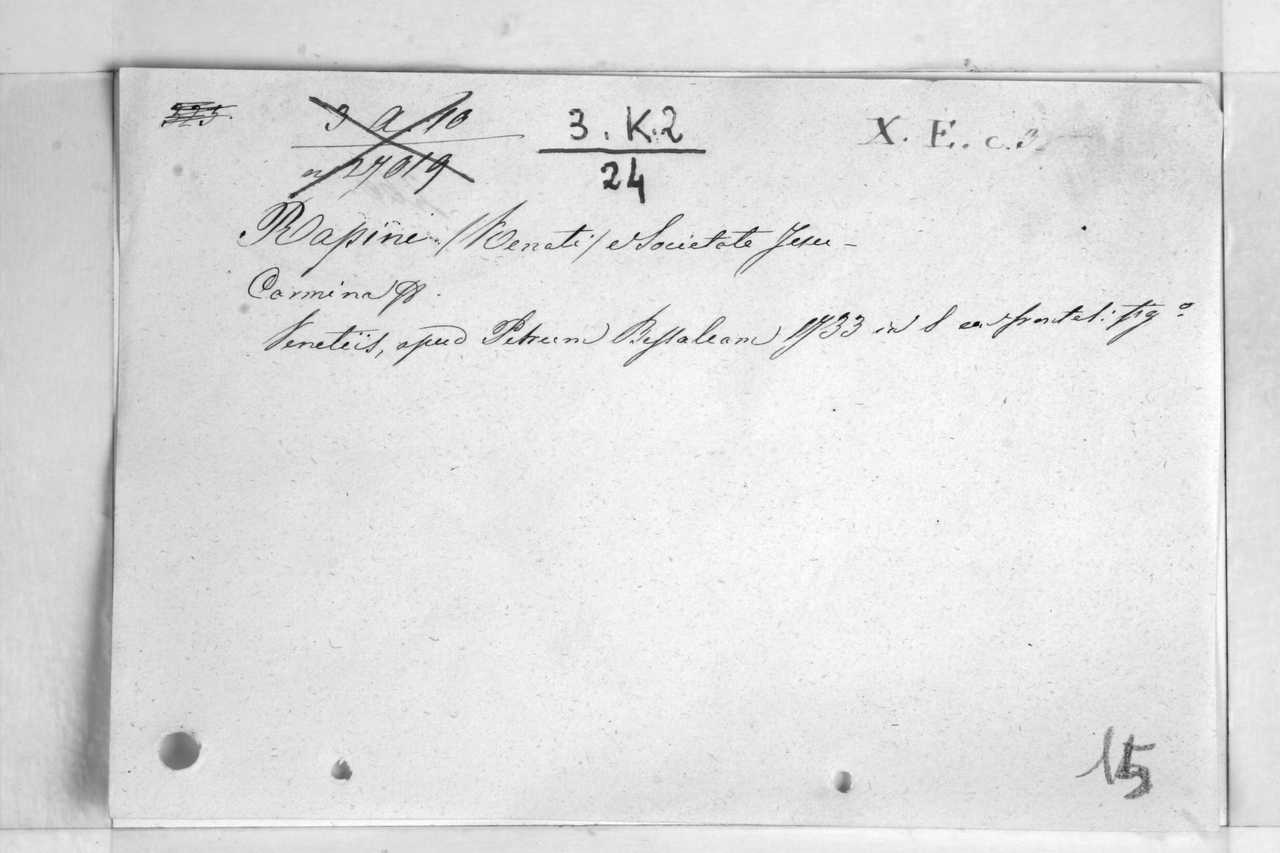 525.
3 a. 10
n 27019
3. K.2
24
X. E. c. 3.
Rapini (Renati) e Societate Jesu -
Carmina
Venetiis, apud Petrum Bassaleam 1733 in 8 cu frontesp: fig.º
15